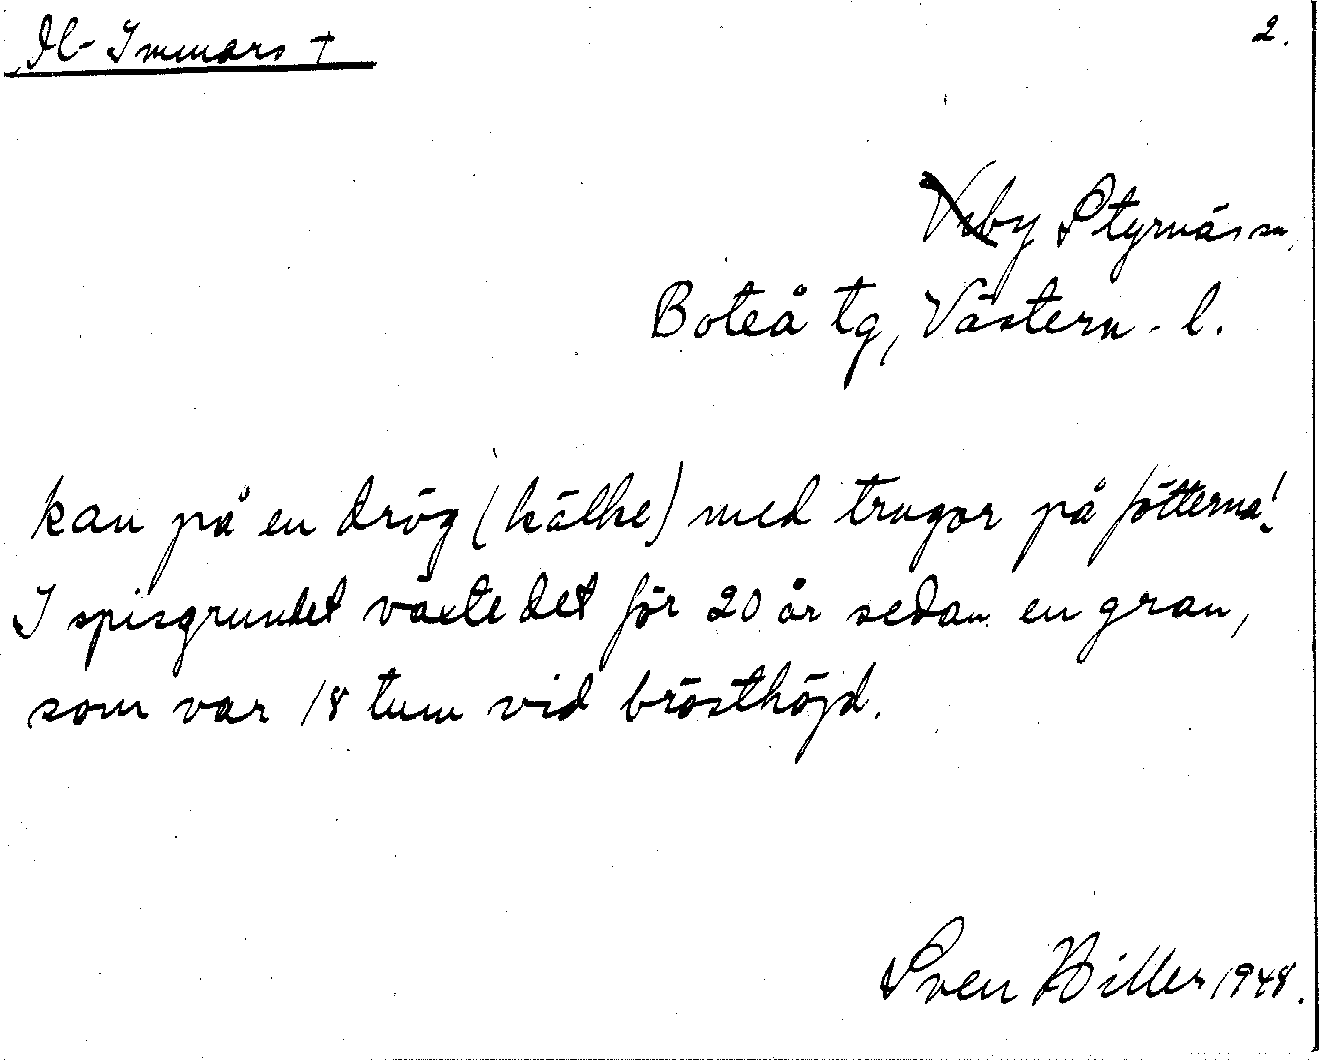 Il-Immars + 2.
Väby Styrnäs sn,
Boteå tg, Västern.-l.
kan på en drög (kälke) med trugor på fötterna!
I spisgrundet växte det för 20 år sedan en gran,
som var 18 tum vid brösthöjd.
Sven Hiller 1948.